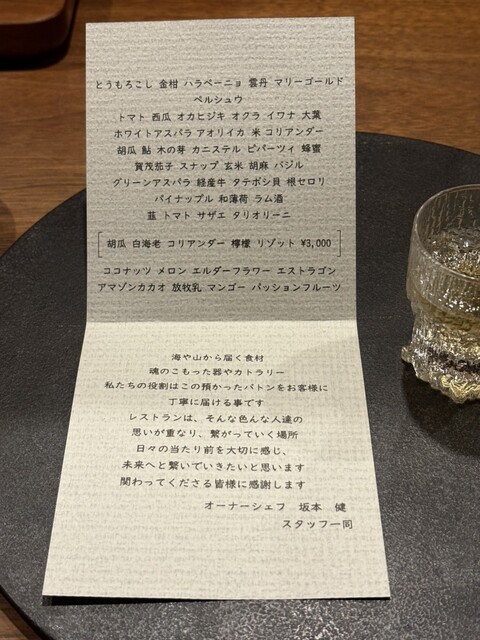 とうもろこし 金柑 ハラペーニョ 雲丹 マリーゴールド
ペルシュウ
トマト 西瓜 オカヒジキ オクラ イワナ 大葉
ホワイトアスパラ アオリイカ 米 コリアンダー
胡瓜 鮎 木の芽 カニステル ピパーツィ 蜂蜜
賀茂茄子 スナップ 玄米 胡麻 バジル
グリーンアスパラ 経産牛 タテボシ貝 根セロリ
パイナップル 和薄荷 ラム酒
韮 トマト サザエ タリオリーニ
胡瓜 白海老 コリアンダー 檸檬 リゾット ¥3,000
ココナッツ メロン エルダーフラワー エストラゴン
アマゾンカカオ 放牧乳 マンゴー パッションフルーツ
海や山から届く食材
魂のこもった器やカトラリー
私たちの役割はこの預かったバトンをお客様に
丁寧に届ける事です
レストランは、そんな色んな人達の
思いが重なり、繋がっていく場所
日々の当たり前を大切に感じ、
未来へと繋いでいきたいと思います
関わってくださる皆様に感謝します
オーナーシェフ 坂本 健
スタッフ一同